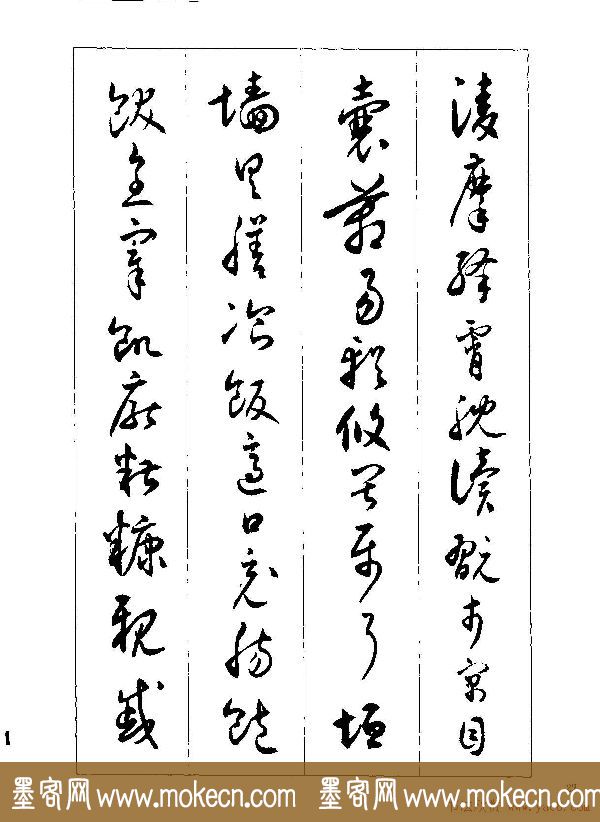 凌摩絳霄耽讀翫市寓目
囊箱易輶攸畏屬耳垣
墙具膳飡飯適口充腸飽
飫烹宰飢厭糟糠親戚
1
墨客网 www.mokecn.com 墨客网 www.mokecn.com